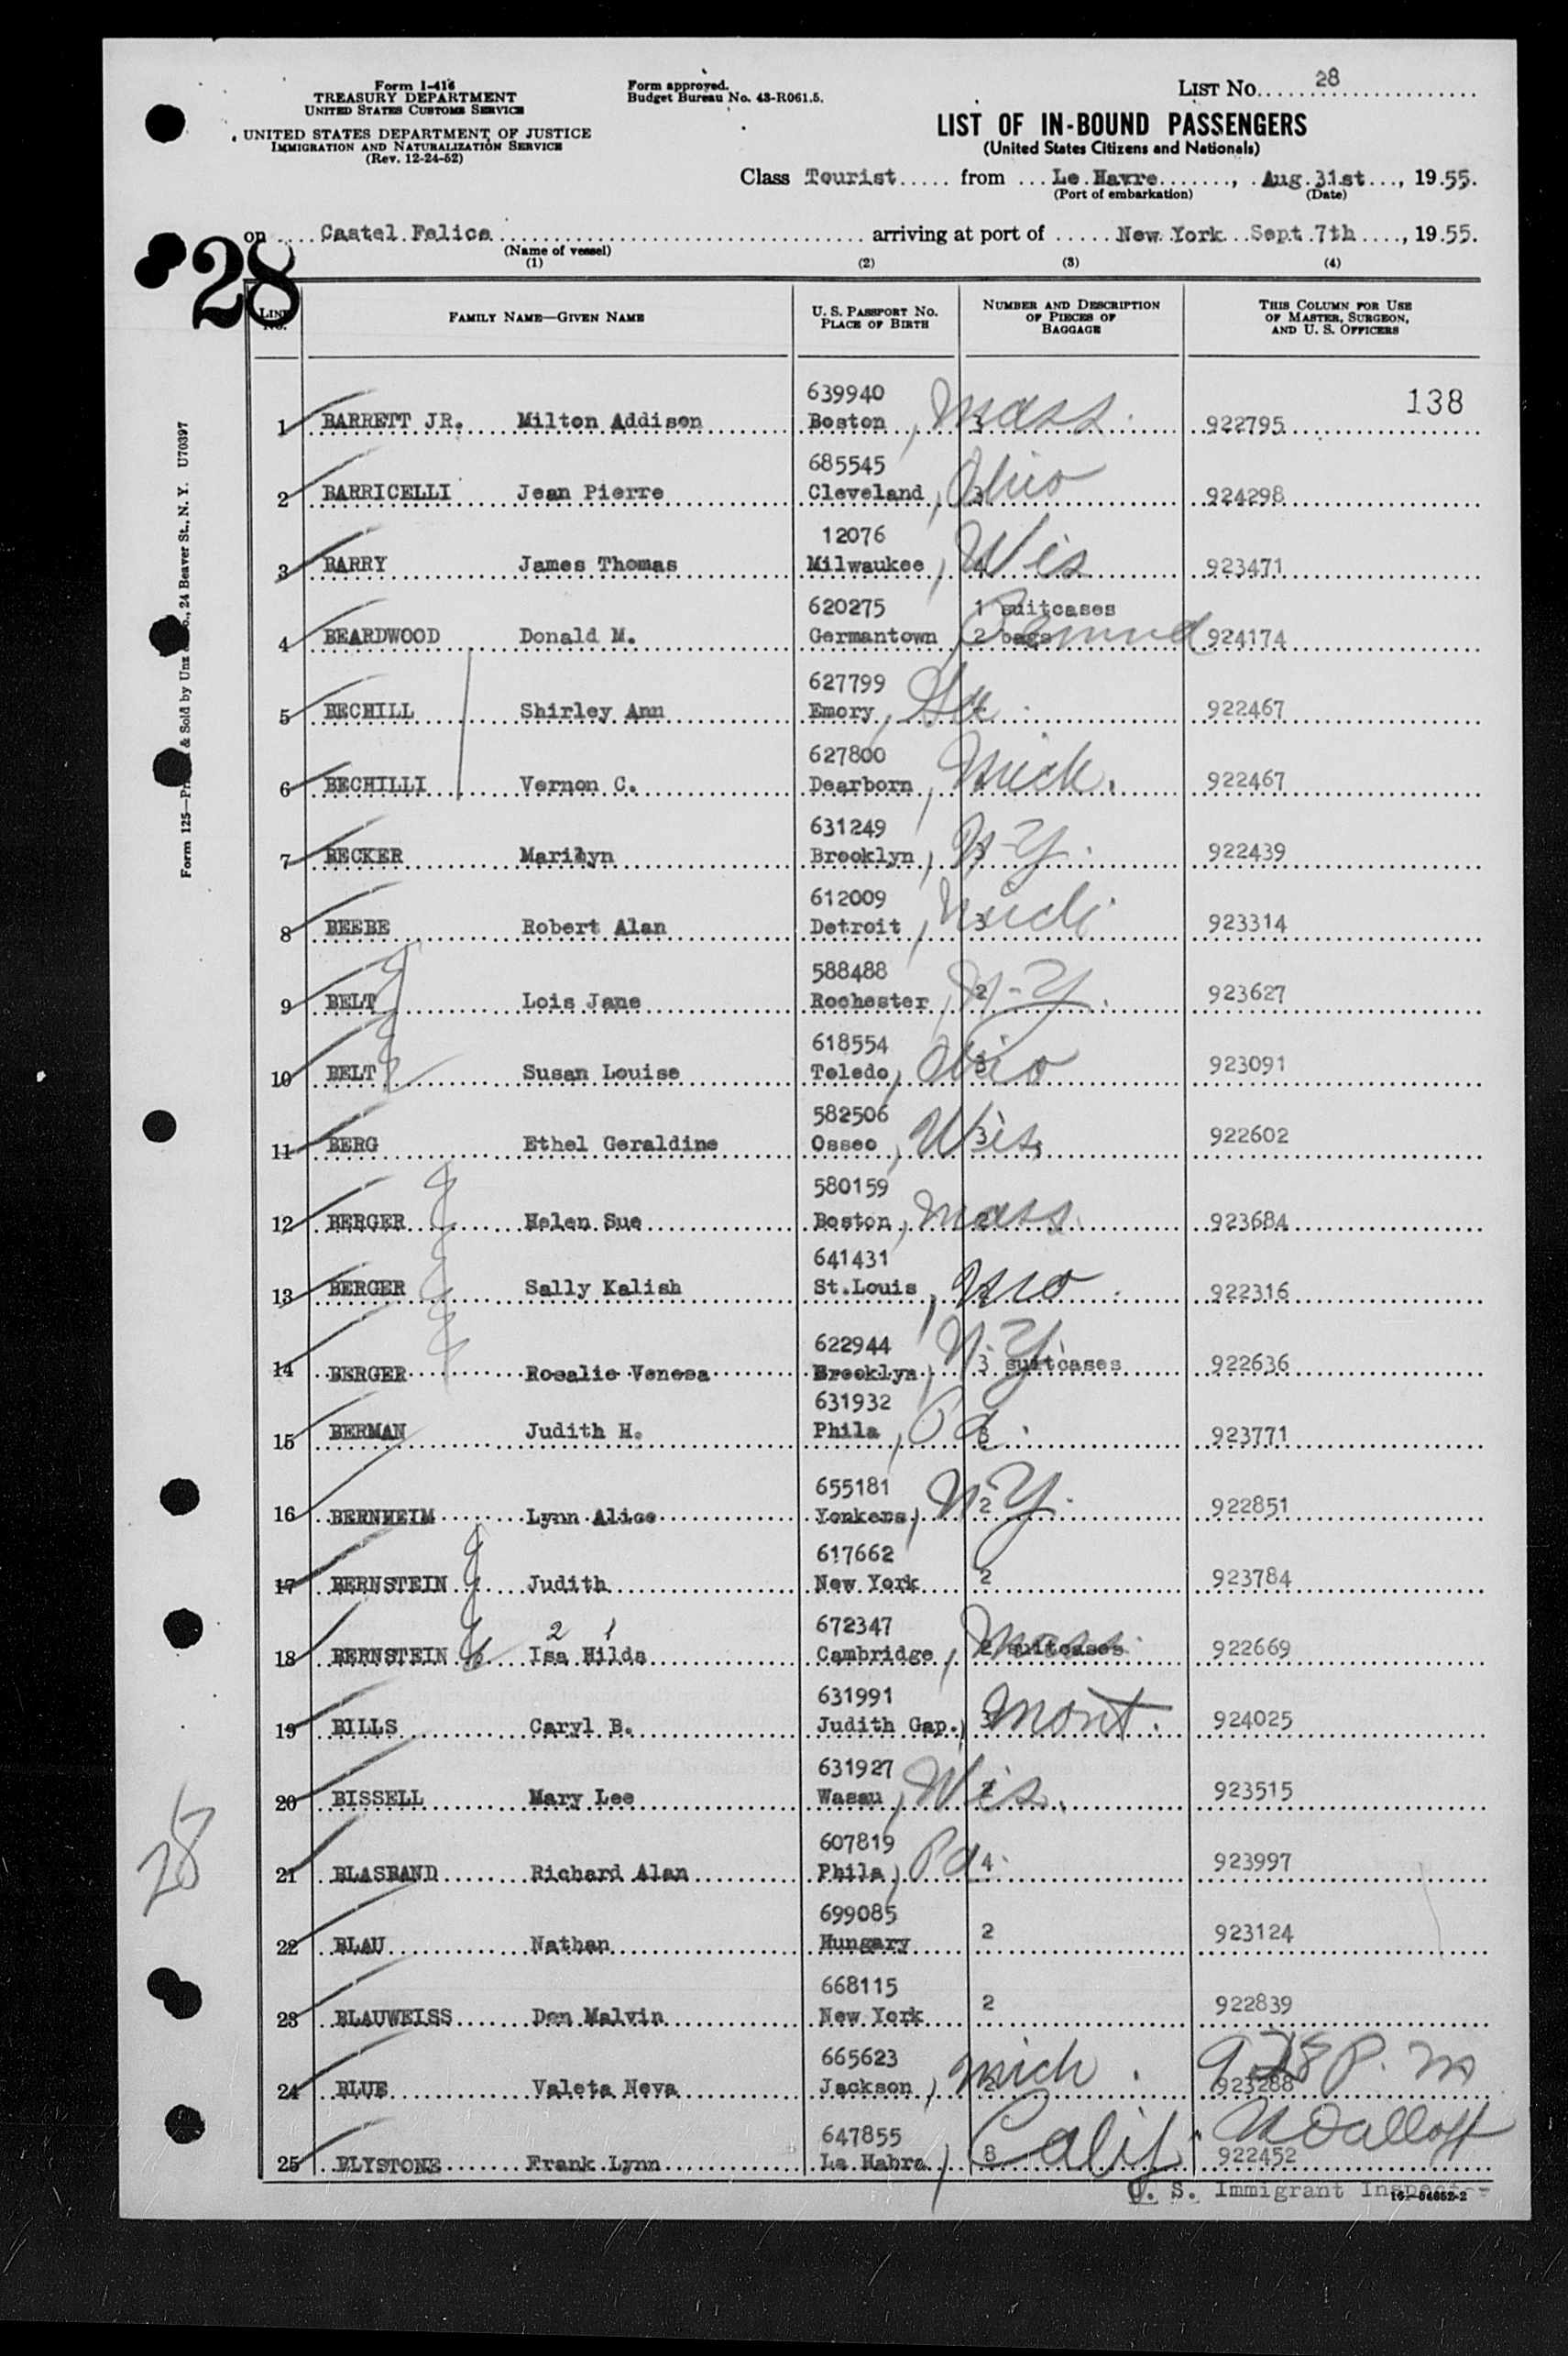 Form I-416
TREASURY DEPARTMENT
UNITED STATES CUSTOMS SERVICE
UNITED STATES DEPARTMENT OF JUSTICE
IMMIGRATION AND NATURALIZATION SERVICE
(Rev. 12-24-52)
Form approved.
Budget Bureau No. 43-R061.5.
LIST No. 28
LIST OF IN-BOUND PASSENGERS
(United States Citizens and Nationals)
Class Tourist from Le Havre, Aug. 31st, 1955.
(Port of embarkation) (Date)
on Castel Felice arriving at port of New York Sept. 7th, 1955.
(Name of vessel)
(1) (2) (3) (4)
28
LINE No. FAMILY NAME—GIVEN NAME U. S. PASSPORT No. PLACE OF BIRTH NUMBER AND DESCRIPTION OF PIECES OF BAGGAGE THIS COLUMN FOR USE OF MASTER, SURGEON, AND U. S. OFFICERS
138
639940
1 BARRETT JR. Milton Addison Boston, Mass. 3 922795
685545
2 BARRICELLI Jean Pierre Cleveland, Ohio 3 924298
12076
3 BARRY James Thomas Milwaukee, Wis 923471
620275 1 suitcases
4 BEARDWOOD Donald M. Germantown 2 bags 924174
627799
5 BECHILL Shirley Ann Emory, Ga 922467
627800
6 BECHILLI Vernon C. Dearborn, Mich. 922467
631249
7 BECKER Marilyn Brooklyn, N.Y. 3 922439
612009
8 BEEBE Robert Alan Detroit, Mich 3 923314
588488
9 BELT Lois Jane Rochester, N.Y. 2 923627
618554
10 BELT Susan Louise Toledo, Ohio 3 923091
582506
11 BERG Ethel Geraldine Osseo, Wis. 3 922602
580159
12 BERGER Helen Sue Boston, Mass. 2 923684
641431
13 BERGER Sally Kalish St.Louis, Mo 922316
622944
14 BERGER Rosalie Venesa Brooklyn, N.Y. 3 suitcases 922636
631932
15 BERMAN Judith H. Phila, Pa. 3 923771
655181
16 BERNHEIM Lynn Alice Yonkers, N.Y. 2 922851
617662
17 BERNSTEIN Judith New York 2 923784
672347
2 1
18 BERNSTEIN Isa Hilda Cambridge, Mass. 2 suitcases 922669
631991
19 BILLS Caryl B. Judith Gap., Mont. 3 924025
631927
20 BISSELL Mary Lee Wasau, Wis. 2 923515
607819
21 BLASBAND Richard Alan Phila, Pa. 4 923997
699085
22 BLAU Nathan Hungary 2 923124
668115
23 BLAUWEISS Den Malvin New York 2 922839
665623
24 BLUE Valeta Neva Jackson, Mich. 2 923288
647855
25 BLYSTONE Frank Lynn La Habra, Calif 8 922452
U. S. Immigrant Inspector
16—54652-2
28
Form 125— & Sold by Unz Co., 24 Beaver St., N. Y. U70397